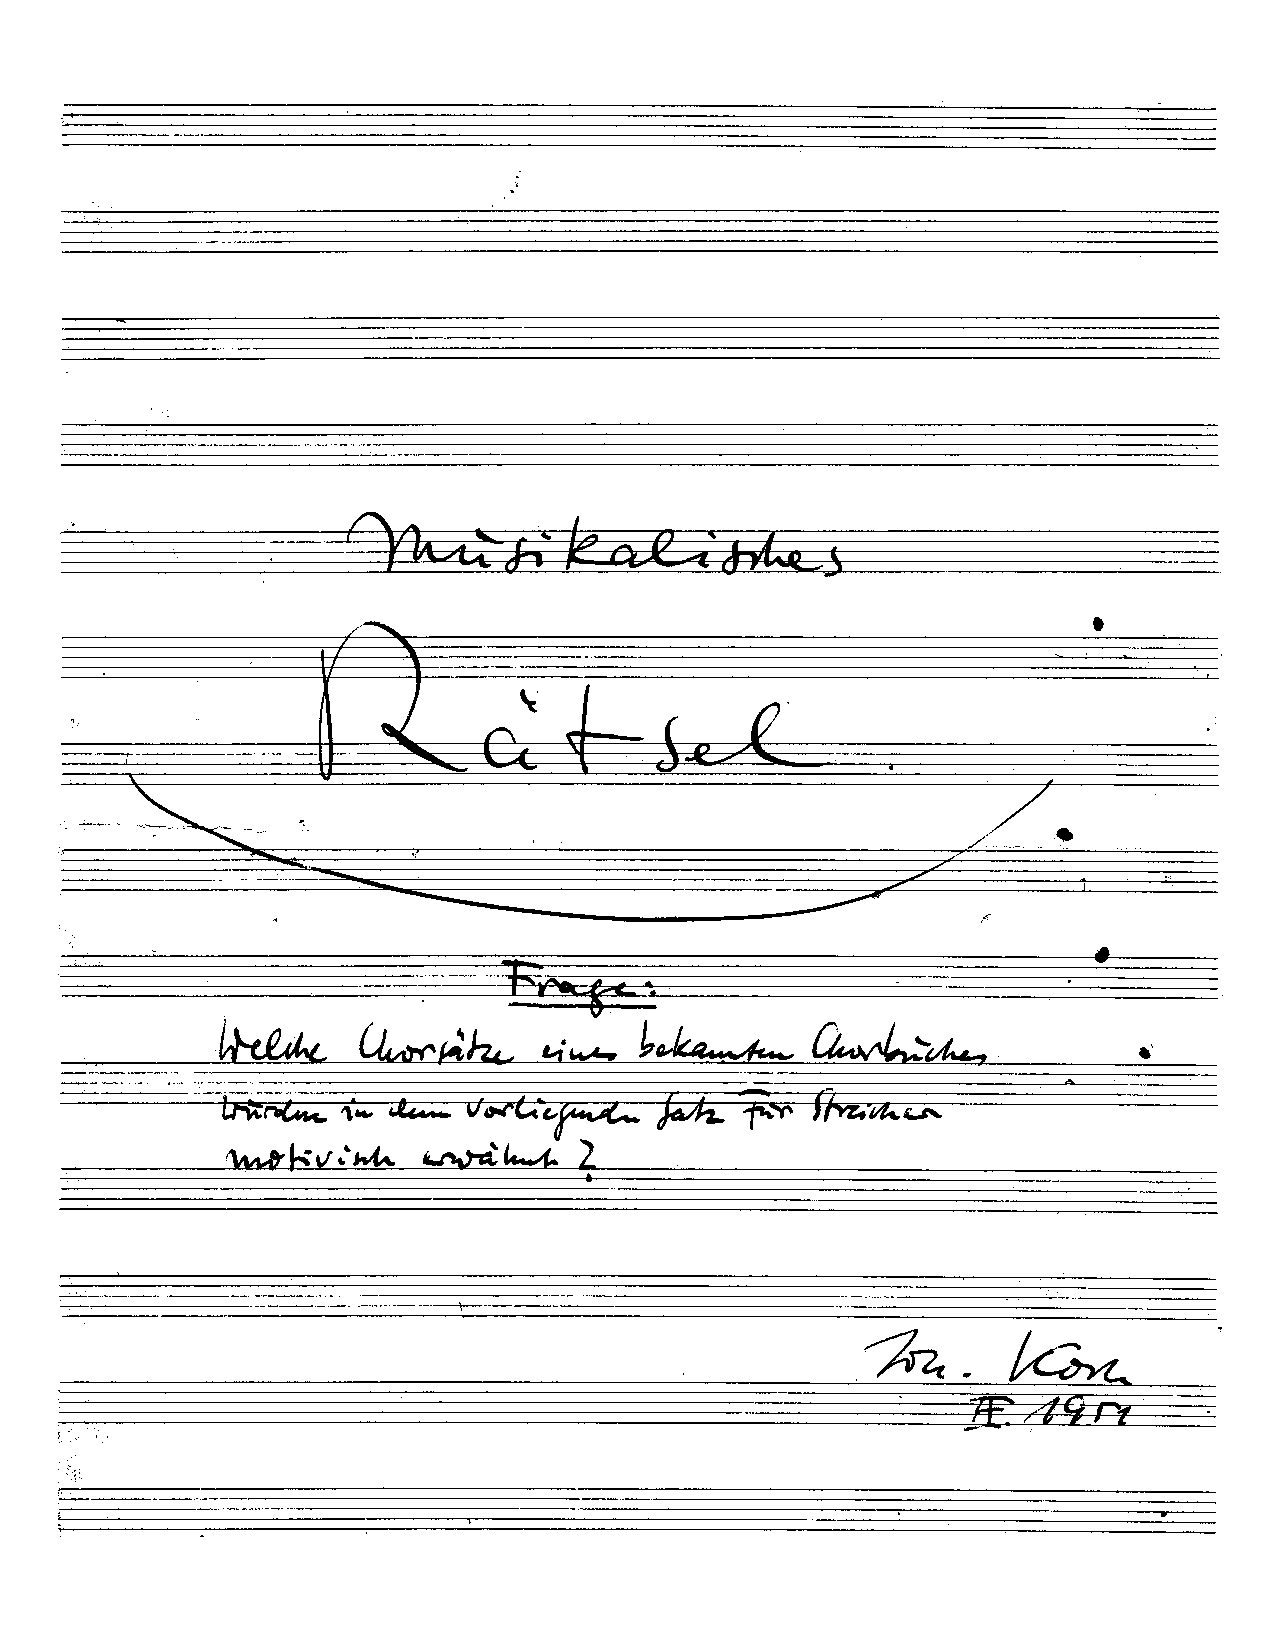 Musikalisches
Rätsel
Frage:
Welche Chorsätze eines bekannten Chorbuches
wurden in dem vorliegenden Satz für Streicher
motivisch erwähnt?
Joh. Koch
1951